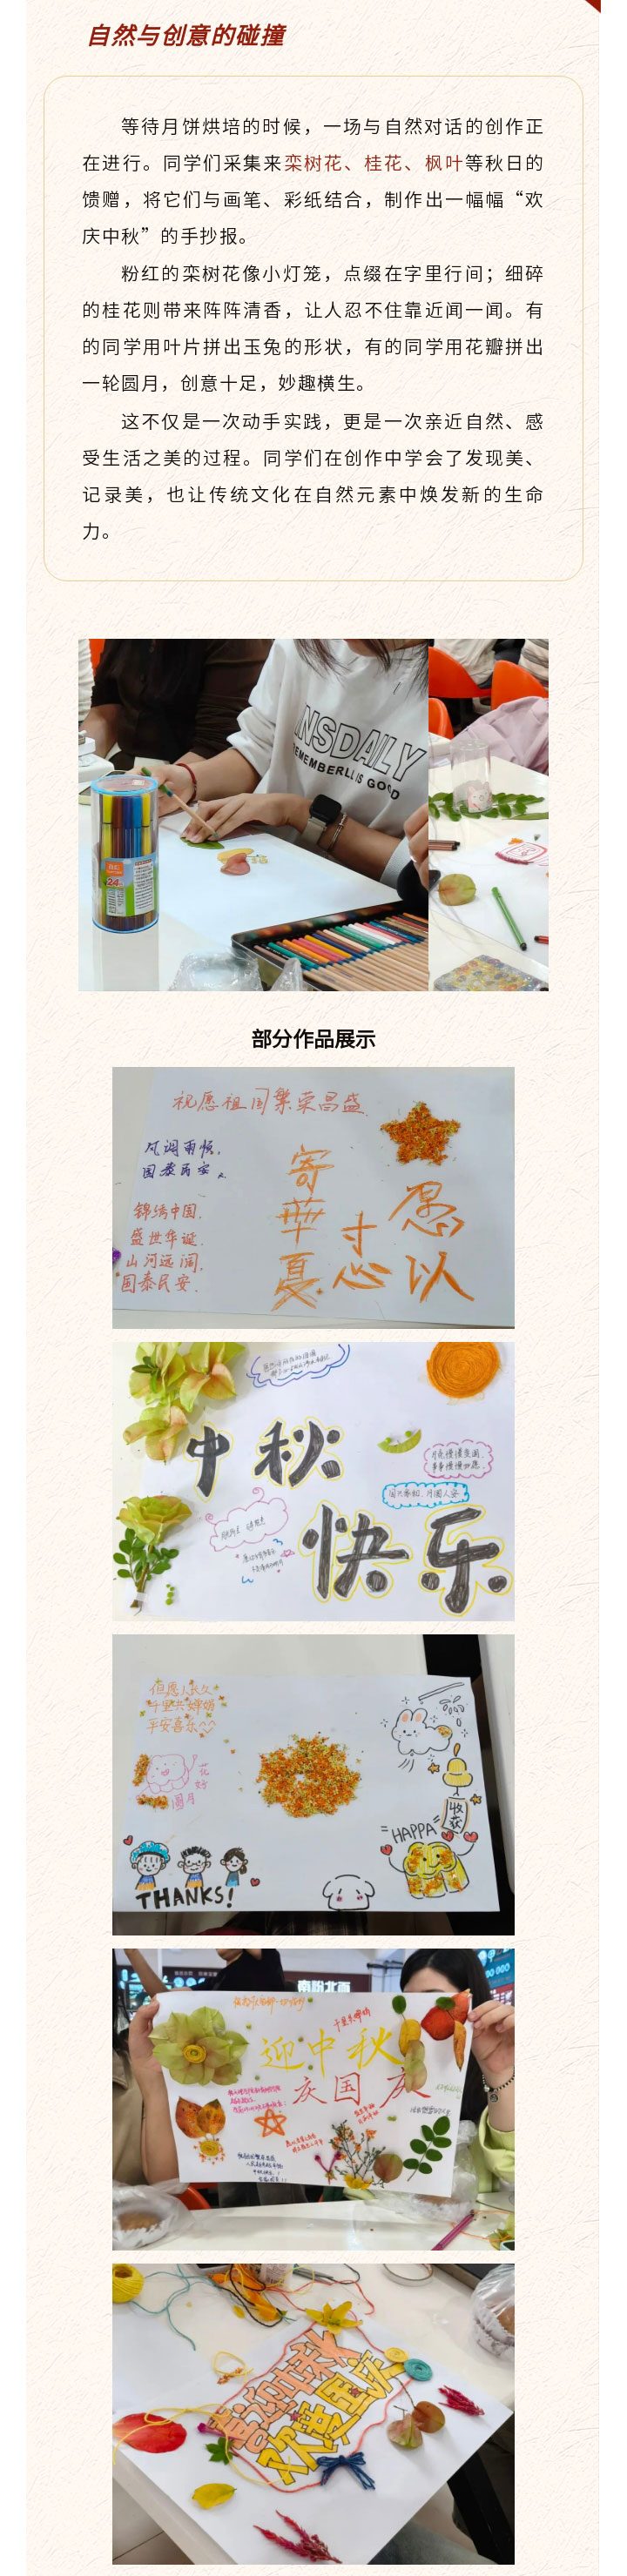 自然与创意的碰撞
等待月饼烘培的时候，一场与自然对话的创作正
在进行。同学们采集来栾树花、桂花、枫叶等秋日的
馈赠，将它们与画笔、彩纸结合，制作出一幅幅“欢
庆中秋”的手抄报。
粉红的栾树花像小灯笼，点缀在字里行间；细碎
的桂花则带来阵阵清香，让人忍不住靠近闻一闻。有
的同学用叶片拼出玉兔的形状，有的同学用花瓣拼出
一轮圆月，创意十足，妙趣横生。
这不仅是一次动手实践，更是一次亲近自然、感
受生活之美的过程。同学们在创作中学会了发现美、
记录美，也让传统文化在自然元素中焕发新的生命
力。
NSDAILY
24
部分作品展示
祝愿祖国繁荣昌盛.
风调雨顺,
国泰民安.
锦绣中国.
盛世华诞.
山河远阔.
国泰民安.
愿以
寸心
寄華夏
中秋
快乐
月圆人安
但愿人长久
千里共婵娟
平安喜乐^^
花好
圆月
收获
HAPPA
THANKS!
千里共婵娟
迎中秋
庆国庆
喜迎中秋
欢度国庆